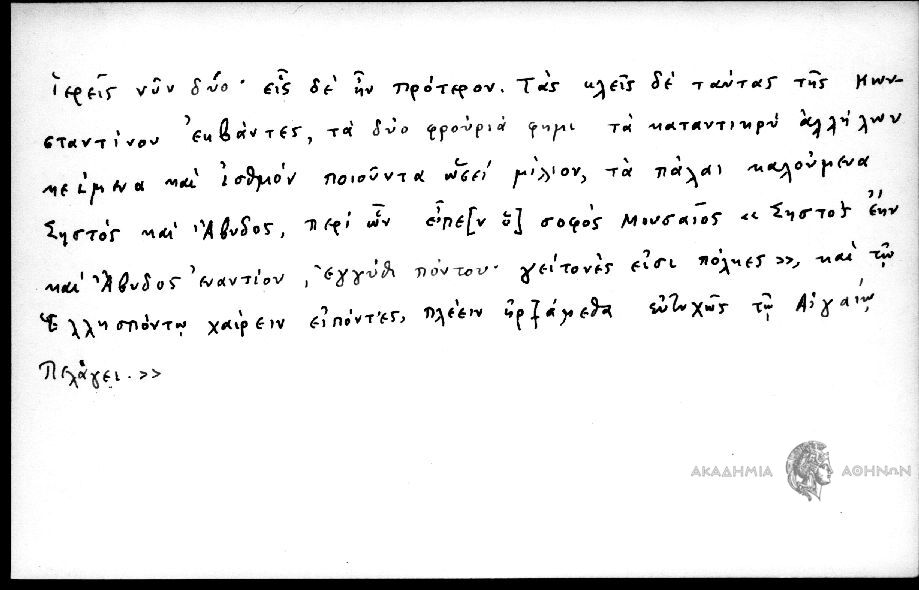 ἱερεῖς νῦν δύο· εἷς δὲ ἦν πρότερον. Τὰς κλεῖς δὲ ταύτας τῆς Κων-
σταντίνου ἐκβάντες, τὰ δύο φρούριά φημι τὰ καταντικρὺ ἀλλήλων
κείμενα καὶ ἰσθμὸν ποιοῦντα ὡσεὶ μίλιον, τὰ πάλαι καλούμενα
Σηστὸς καὶ Ἄβυδος, περὶ ὧν εἶπε[ν ὁ] σοφὸς Μουσαῖος « Σηστὸς ἔην
καὶ Ἄβυδος ἐναντίον, ἐγγύθι πόντου· γείτονές εἰσι πόληες », καὶ τῷ
Ἑλλησπόντῳ χαίρειν εἰπόντες, πλέειν ἠρξάμεθα εὐτυχῶς τῷ Αἰγαίῳ
Πελάγει. »
ΑΚΑΔΗΜΙΑ ΑΘΗΝΩΝ